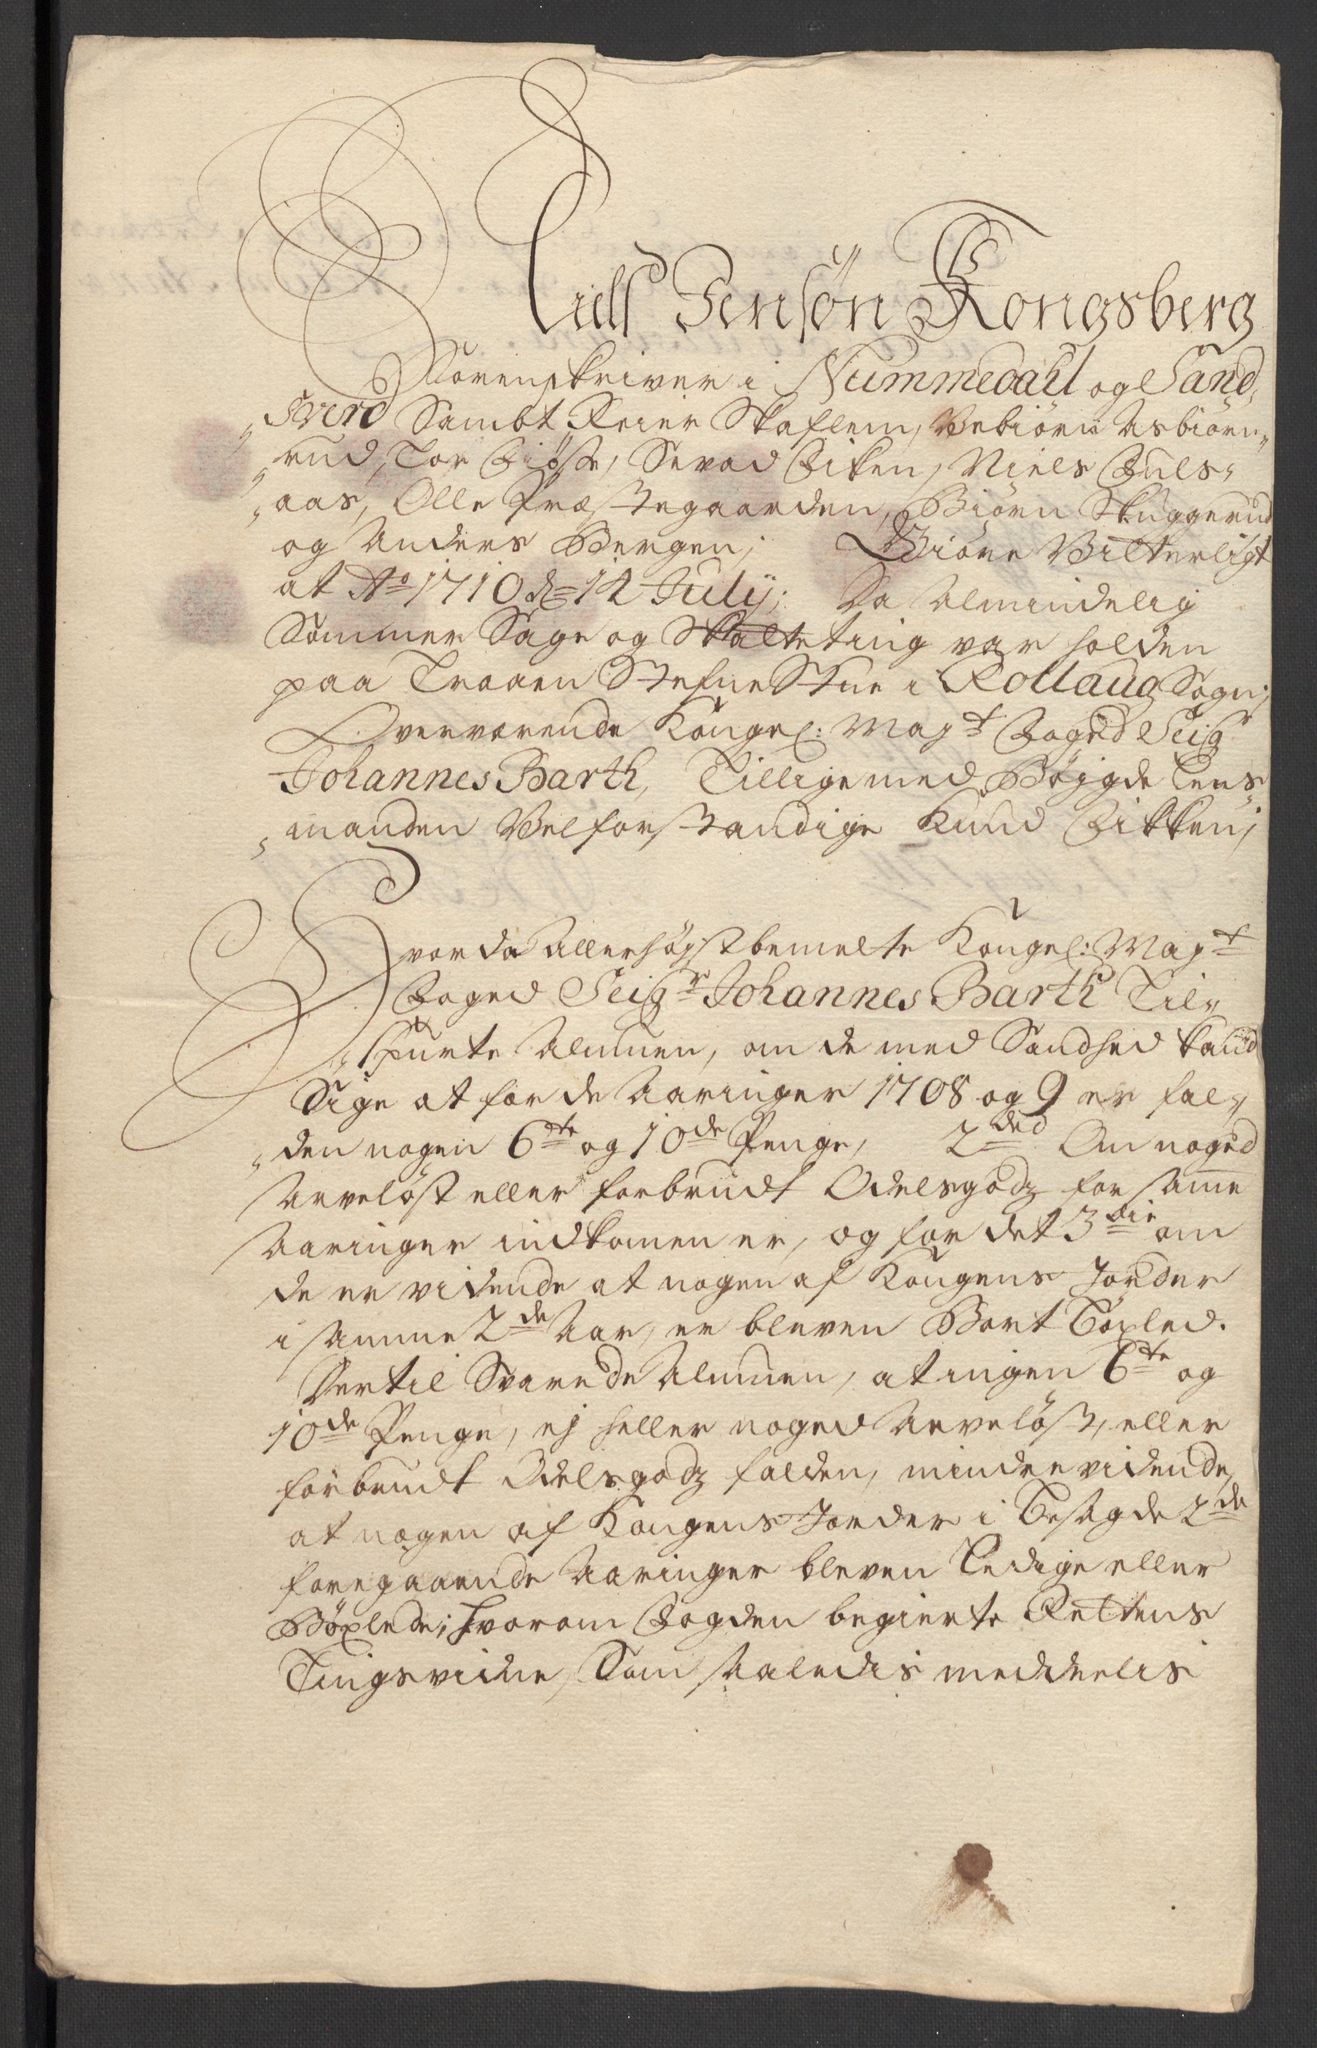 Nills Jensøn Kongsberg
Sorenskriver i Nummedahl og Sand,,
Sverd Sambt Reier Skaflem, Vebiørn Asbiørn,,
rud, Tor Fiøse, Sevad Fiken, Niels Fuls,,
aas, Olle Præstegaarden, Biørn Skuggerud
og Anders Bergen; Giøre Vitterligt
at Ao 1710 d= 12 July; Da Almindelig
Sommer Sage og Skatteting var holden
paa Traaen Stefne Stue i Rollaug Sogn;
Overværende Kongel: Mayt Foged Seigr
Johannes Barth, Tillige med Bøjgde Lens
manden Velforstandige Knud Fikken;
Hvor da Allerhøyst bemelte Kongel: Mayt
Foged Seigr Johannes Barth Til,,
spurte Almuen, om de med Sandhed kand
Sige at for de Aaringer 1708 og 9 er fal,,
den nogen 6te og 10de Penge, 2ded Om noged
Arveløst eller forbrudt Odelsgodz for samme
Aaringer indkomen er, og for det 3die om
de er vidende at nogen af Kongens Jorder
i samme 2de Aar, er bleven Bort Böxled.
Dertil Svarede Almuen, at ingen 6te og
10de Penge, ej heller noged Arveløst, eller
forbrudt Odelsgodz falden, mindre vidende,
at nogen af Kongens Jorder i Besagde 2de
foregaaende Aaringer bleven Ledige eller
Bøxlede; hvorom Fogden begierte Rettens
Tingsvidne, Som saaledis meddeelis